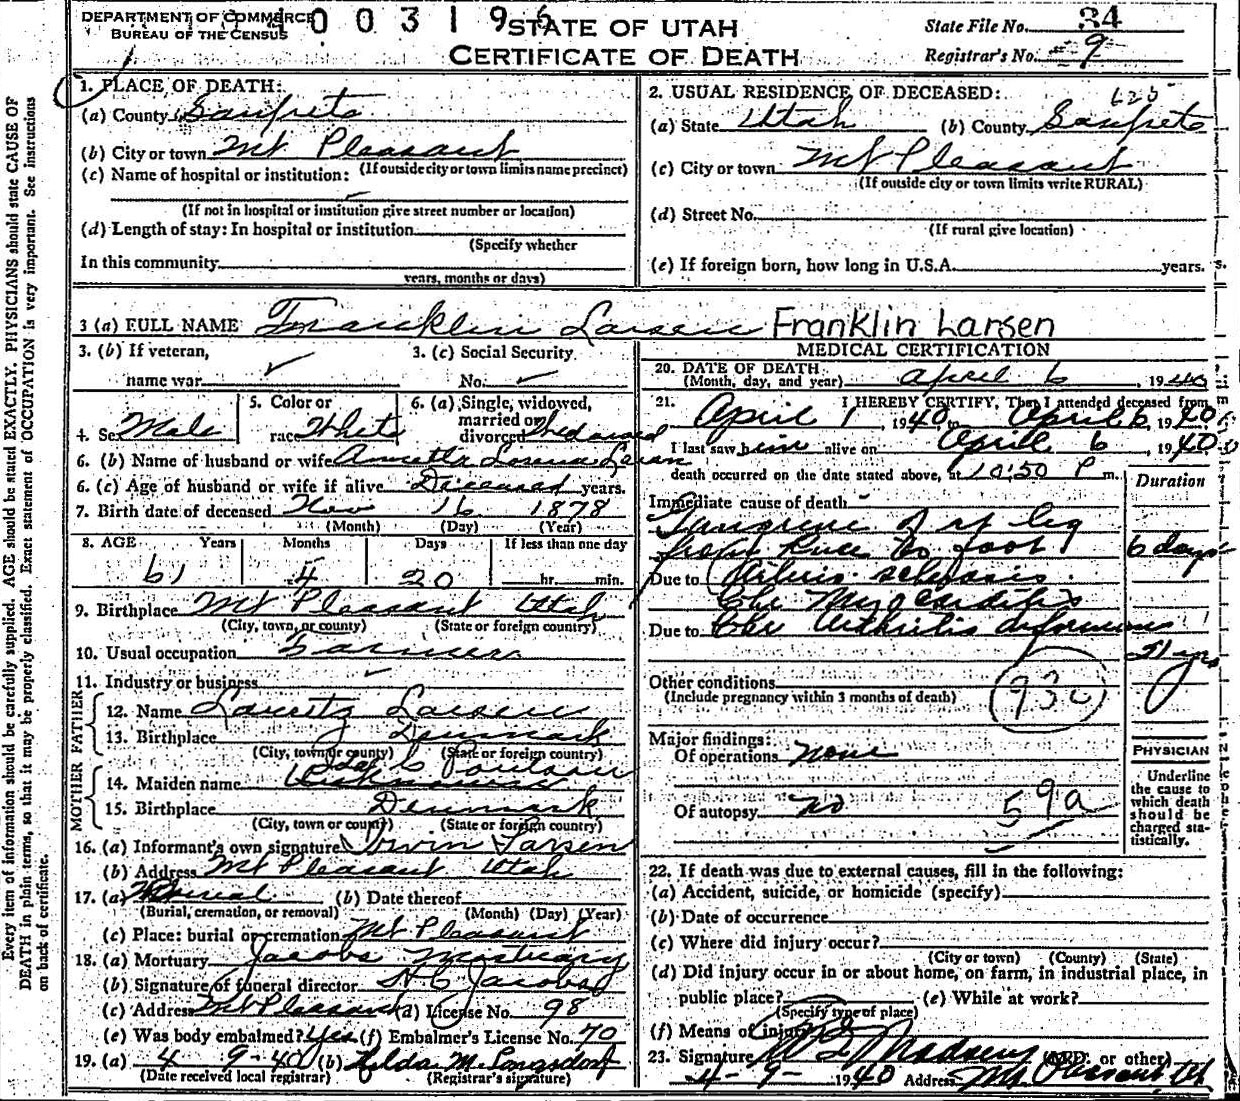 DEPARTMENT OF COMMERCE
BUREAU OF THE CENSUS
400319
STATE OF UTAH
CERTIFICATE OF DEATH
State File No. 34
Registrar's No. 9
Every item of information should be carefully supplied. AGE should be stated EXACTLY. PHYSICIANS should state CAUSE OF
DEATH in plain terms, so that it may be properly classified. Exact statement of OCCUPATION is very important. See instructions
on back of certificate.
1. PLACE OF DEATH:
(a) County Sanpete
(b) City or town Mt Pleasant
(If outside city or town limits name precinct)
(c) Name of hospital or institution:
(If not in hospital or institution give street number or location)
(d) Length of stay: In hospital or institution
(Specify whether
In this community
years, months or days)
2. USUAL RESIDENCE OF DECEASED: 625
(a) State Utah (b) County Sanpete
(c) City or town Mt Pleasant
(If outside city or town limits write RURAL)
(d) Street No.
(If rural give location)
(e) If foreign born, how long in U.S.A. years.
3 (a) FULL NAME Franklin Larsen Franklin Larsen
3. (b) If veteran,
name war
3. (c) Social Security
No.
4. Sex Male
5. Color or
race White
6. (a) Single, widowed,
married or
divorced Widowed
6. (b) Name of husband or wife
6. (c) Age of husband or wife if alive Deceased years.
7. Birth date of deceased Nov 16 1878
(Month) (Day) (Year)
8. AGE Years Months Days If less than one day
61 4 20 hr. min.
9. Birthplace Mt Pleasant Utah
(City, town, or county) (State or foreign country)
10. Usual occupation Farmer
11. Industry or business
FATHER
12. Name Lauritz Larsen
13. Birthplace Denmark
(City, town or county) (State or foreign country)
MOTHER
14. Maiden name
15. Birthplace Denmark
(City, town or county) (State or foreign country)
16. (a) Informant's own signature Irvin Larsen
(b) Address Mt Pleasant Utah
17. (a) Burial (b) Date thereof
(Burial, cremation, or removal) (Month) (Day) (Year)
(c) Place: burial or cremation Mt Pleasant
18. (a) Mortuary Jacobs Mortuary
(b) Signature of funeral director H C Jacobs
(c) Address Mt Pleasant (d) License No. 98
(e) Was body embalmed? Yes (f) Embalmer's License No. 70
19. (a) 4 9-40 (b) Hilda M. Longsdorf
(Date received local registrar) (Registrar's signature)
MEDICAL CERTIFICATION
20. DATE OF DEATH
(Month, day, and year) April 6, 1940
21. I HEREBY CERTIFY, That I attended deceased from
April 1 1940 to April 6, 1940
I last saw him alive on April 6, 1940
death occurred on the date stated above, at 10:50 P m.
Duration
Immediate cause of death
Gangrene of rt leg
from knee to foot 6 days
Due to Arterio sclerosis
Chr Myocarditis
Due to Chr Arthritis deformans
21 yrs
Other conditions
(Include pregnancy within 3 months of death)
93c
Major findings:
Of operations none
Of autopsy no
59a
PHYSICIAN
Underline
the cause to
which death
should be
charged sta-
tistically.
22. If death was due to external causes, fill in the following:
(a) Accident, suicide, or homicide (specify)
(b) Date of occurrence
(c) Where did injury occur?
(City or town) (County) (State)
(d) Did injury occur in or about home, on farm, in industrial place, in
public place? (e) While at work?
(Specify type of place)
(f) Means of injury
23. Signature (M.D. or other)
4-9- 1940 Address Mt Pleasant Ut